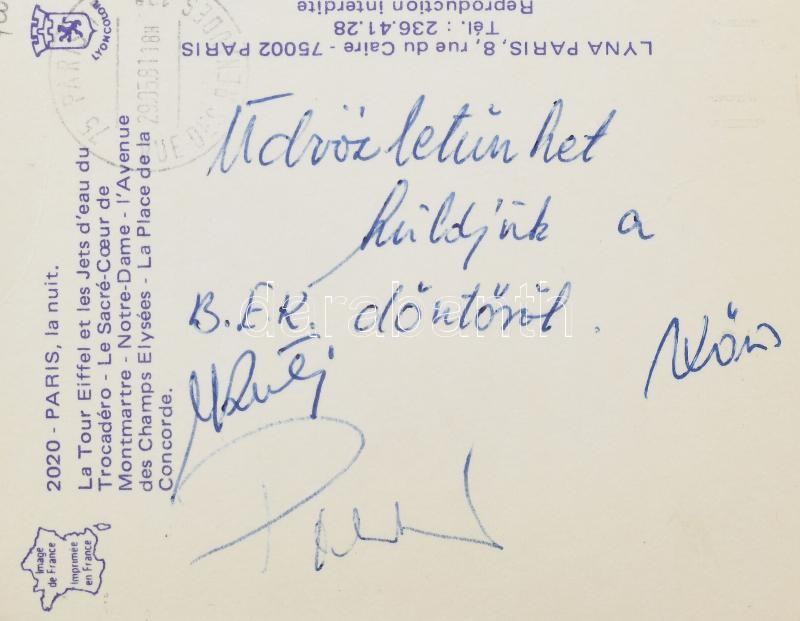 Reproduction interdite
Tél. : 236.41.28
LYNA PARIS, 8, rue du Caire - 75002 PARIS
LYONCOLOR
75 PARIS
29.05.81 18H
2020 - PARIS, la nuit.
La Tour Eiffel et les Jets d'eau du
Trocadéro - Le Sacré-Cœur de
Montmartre - Notre-Dame - l'Avenue
des Champs Elysées - La Place de la
Concorde.
Image
de France
Imprimée
en France
Üdvözletünket
küldjük a
B.EK. döntőről.
darabanth